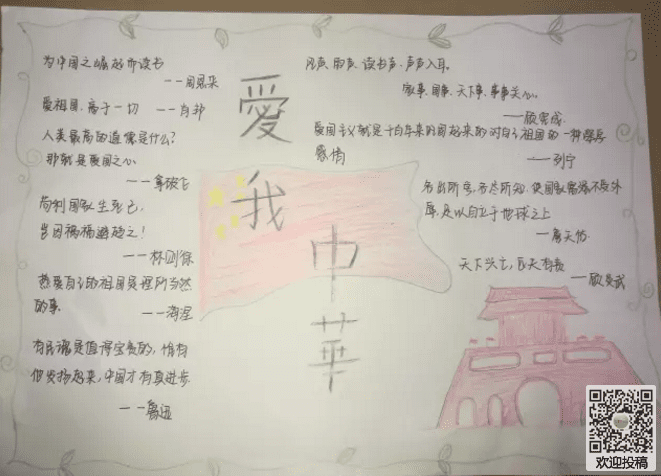 为中国之崛起而读书
——周恩来
爱祖国,高于一切 ——肖邦
人类最高的道德是什么?
那就是爱国之心
——拿破仑
苟利国家生死已,
岂因祸福避趋之!
——林则徐
热爱自己的祖国是理所当然
的事. ——海涅
有民魂是值得宝贵的,惟有
他发扬起来,中国才有真进步
——鲁迅
愛
我
中
華
风声、雨声、读书声,声声入耳。
家事、国事、天下事、事事关心。
爱国主义就是千百年来的固起来的对自己祖国的一种深厚
感情 ——列宁
各出所学,各尽所知,使国家富强不受外
辱,足以自立于地球之上
——詹天佑
天下兴亡,匹夫有责
欢迎投稿